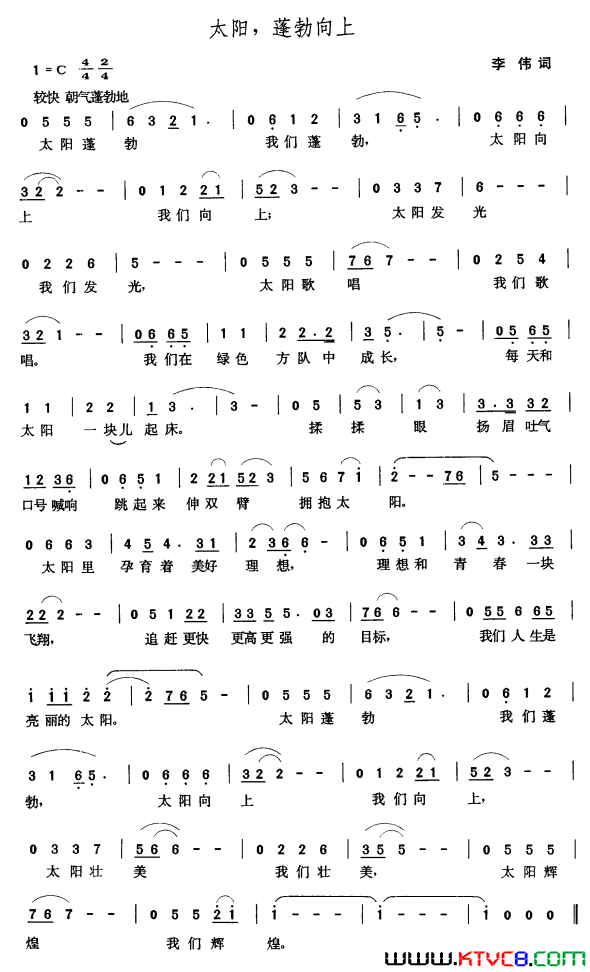 太阳，蓬勃向上
1=C 4/4 2/4 李 伟 词
较快 朝气蓬勃地
0 5 5 5 | 6 3 2 1 · | 0 6 1 2 | 3 1 6 5 · | 0 6 6 6 |
太 阳 蓬 勃 我 们 蓬 勃， 太 阳 向
3 2 2 - - | 0 1 2 2 1 | 5 2 3 - - | 0 3 3 7 | 6 - - - |
上 我 们 向 上； 太 阳 发 光
0 2 2 6 | 5 - - - | 0 5 5 5 | 7 6 7 - - | 0 2 5 4 |
我 们 发 光， 太 阳 歌 唱 我 们 歌
3 2 1 - - | 0 6 6 5 | 1 1 | 2 2 . 2 | 3 5 · | 5 - | 0 5 6 5 |
唱。 我 们 在 绿 色 方 队 中 成 长， 每 天 和
1 1 | 2 2 | 1 3 · | 3 - | 0 5 | 5 3 | 1 3 | 3 . 3 3 2 |
太 阳 一 块 儿 起 床。 揉 揉 眼 扬 眉 吐 气
1 2 3 6 | 0 6 5 1 | 2 2 1 5 2 3 | 5 6 7 i | 2 - - 7 6 | 5 - - - |
口 号 喊 响 跳 起 来 伸 双 臂 拥 抱 太 阳。
0 6 6 3 | 4 5 4 . 3 1 | 2 3 6 6 - | 0 6 5 1 | 3 4 3 · 3 3 |
太 阳 里 孕 育 着 美 好 理 想， 理 想 和 青 春 一 块
2 2 2 - - | 0 5 1 2 2 | 3 3 5 5 . 0 3 | 7 6 6 - - | 0 5 5 6 6 5 |
飞 翔， 追 赶 更 快 更 高 更 强 的 目 标， 我 们 人 生 是
i i i 2 2 | 2 7 6 5 - | 0 5 5 5 | 6 3 2 1 · | 0 6 1 2 |
亮 丽 的 太 阳。 太 阳 蓬 勃 我 们 蓬
3 1 6 5 · | 0 6 6 6 | 3 2 2 - - | 0 1 2 2 1 | 5 2 3 - - |
勃， 太 阳 向 上 我 们 向 上，
0 3 3 7 | 5 6 6 - - | 0 2 2 6 | 3 5 5 - - | 0 5 5 5 |
太 阳 壮 美 我 们 壮 美， 太 阳 辉
7 6 7 - - | 0 5 5 2 1 | i - - - | i - - - | i 0 0 0 ‖
煌 我 们 辉 煌。
www.KTVC8.com